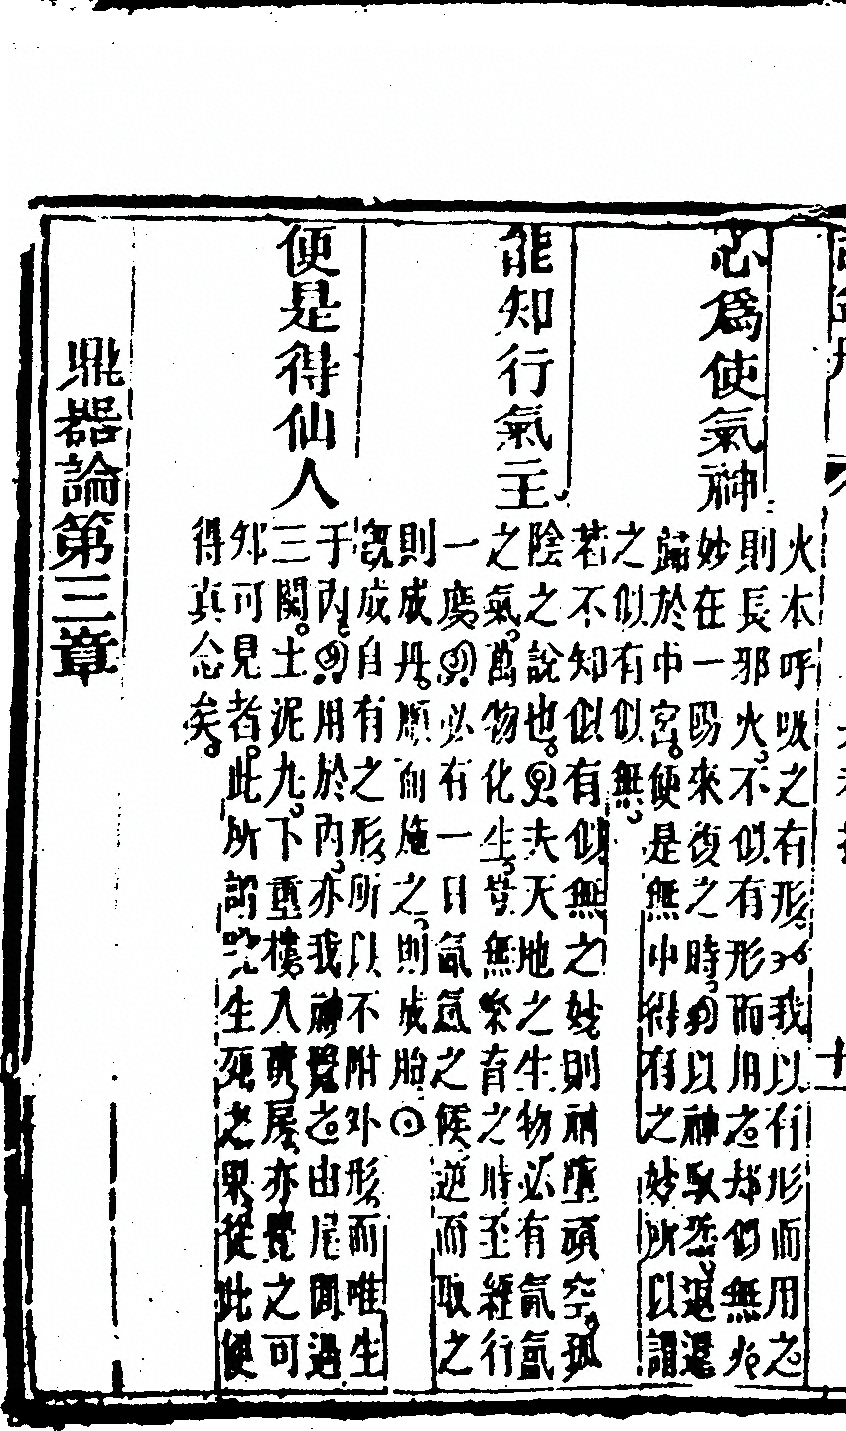 火本呼吸之有形以我以有形而用之
則長邪火不似有形而用之却似無火
妙在一陽來復之時以神馭炁返還
歸於中宮便是無中得有之妙所以謂
之似有似無
忘為使氣神
若不知似有似無之妙則神墮頑空孤
陰之說也夫天地之生物必有氤氲
之氣萬物化生豈無樂育之時至經行
一度必有一日氤氳之候逆而取之
則成丹順而施之則成胎
能知行氣主
既成自有之形所以不附外形而唯生
于內用於內亦我神覺之由尾閭過
三關士泥九下重樓入南房亦覺之可
知可見者此所謂說生死之果從此便
得真念矣
便是得仙人
鼎器論第三章